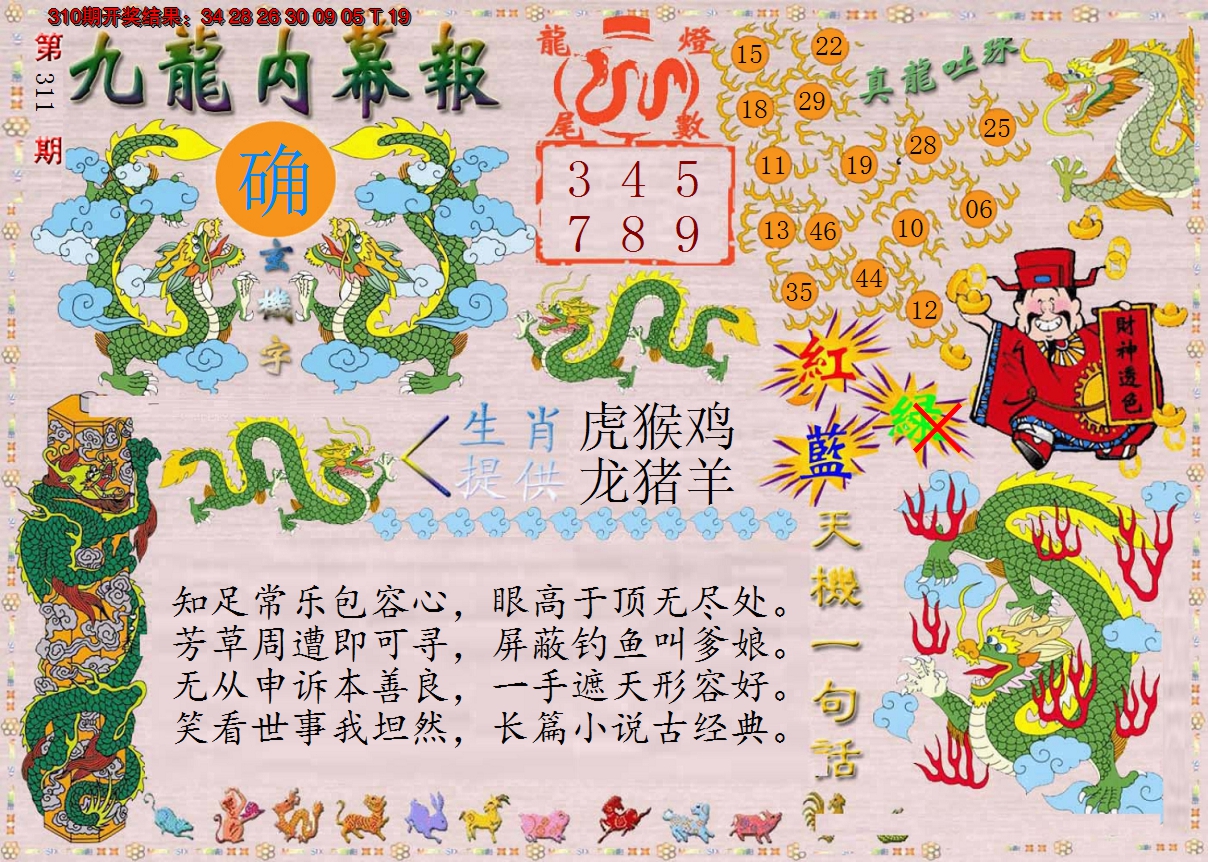 310期开奖结果：34 28 26 30 09 05 T 19
第311期
九龍内幕報
确
玄機字
龍燈
尾數
3 4 5
7 8 9
真龍吐珠
15 22
18 29
11 19 28 25
13 46 10 06
35 44 12
紅
綠
藍
財神透色
生肖提供
虎猴鸡
龙猪羊
天機一句話
知足常乐包容心，眼高于顶无尽处。
芳草周遭即可寻，屏蔽钓鱼叫爹娘。
无从申诉本善良，一手遮天形容好。
笑看世事我坦然，长篇小说古经典。